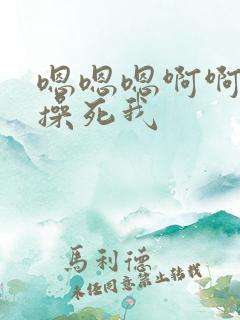 嗯嗯嗯啊啊
操死我
馬利德
未经同意禁止转载